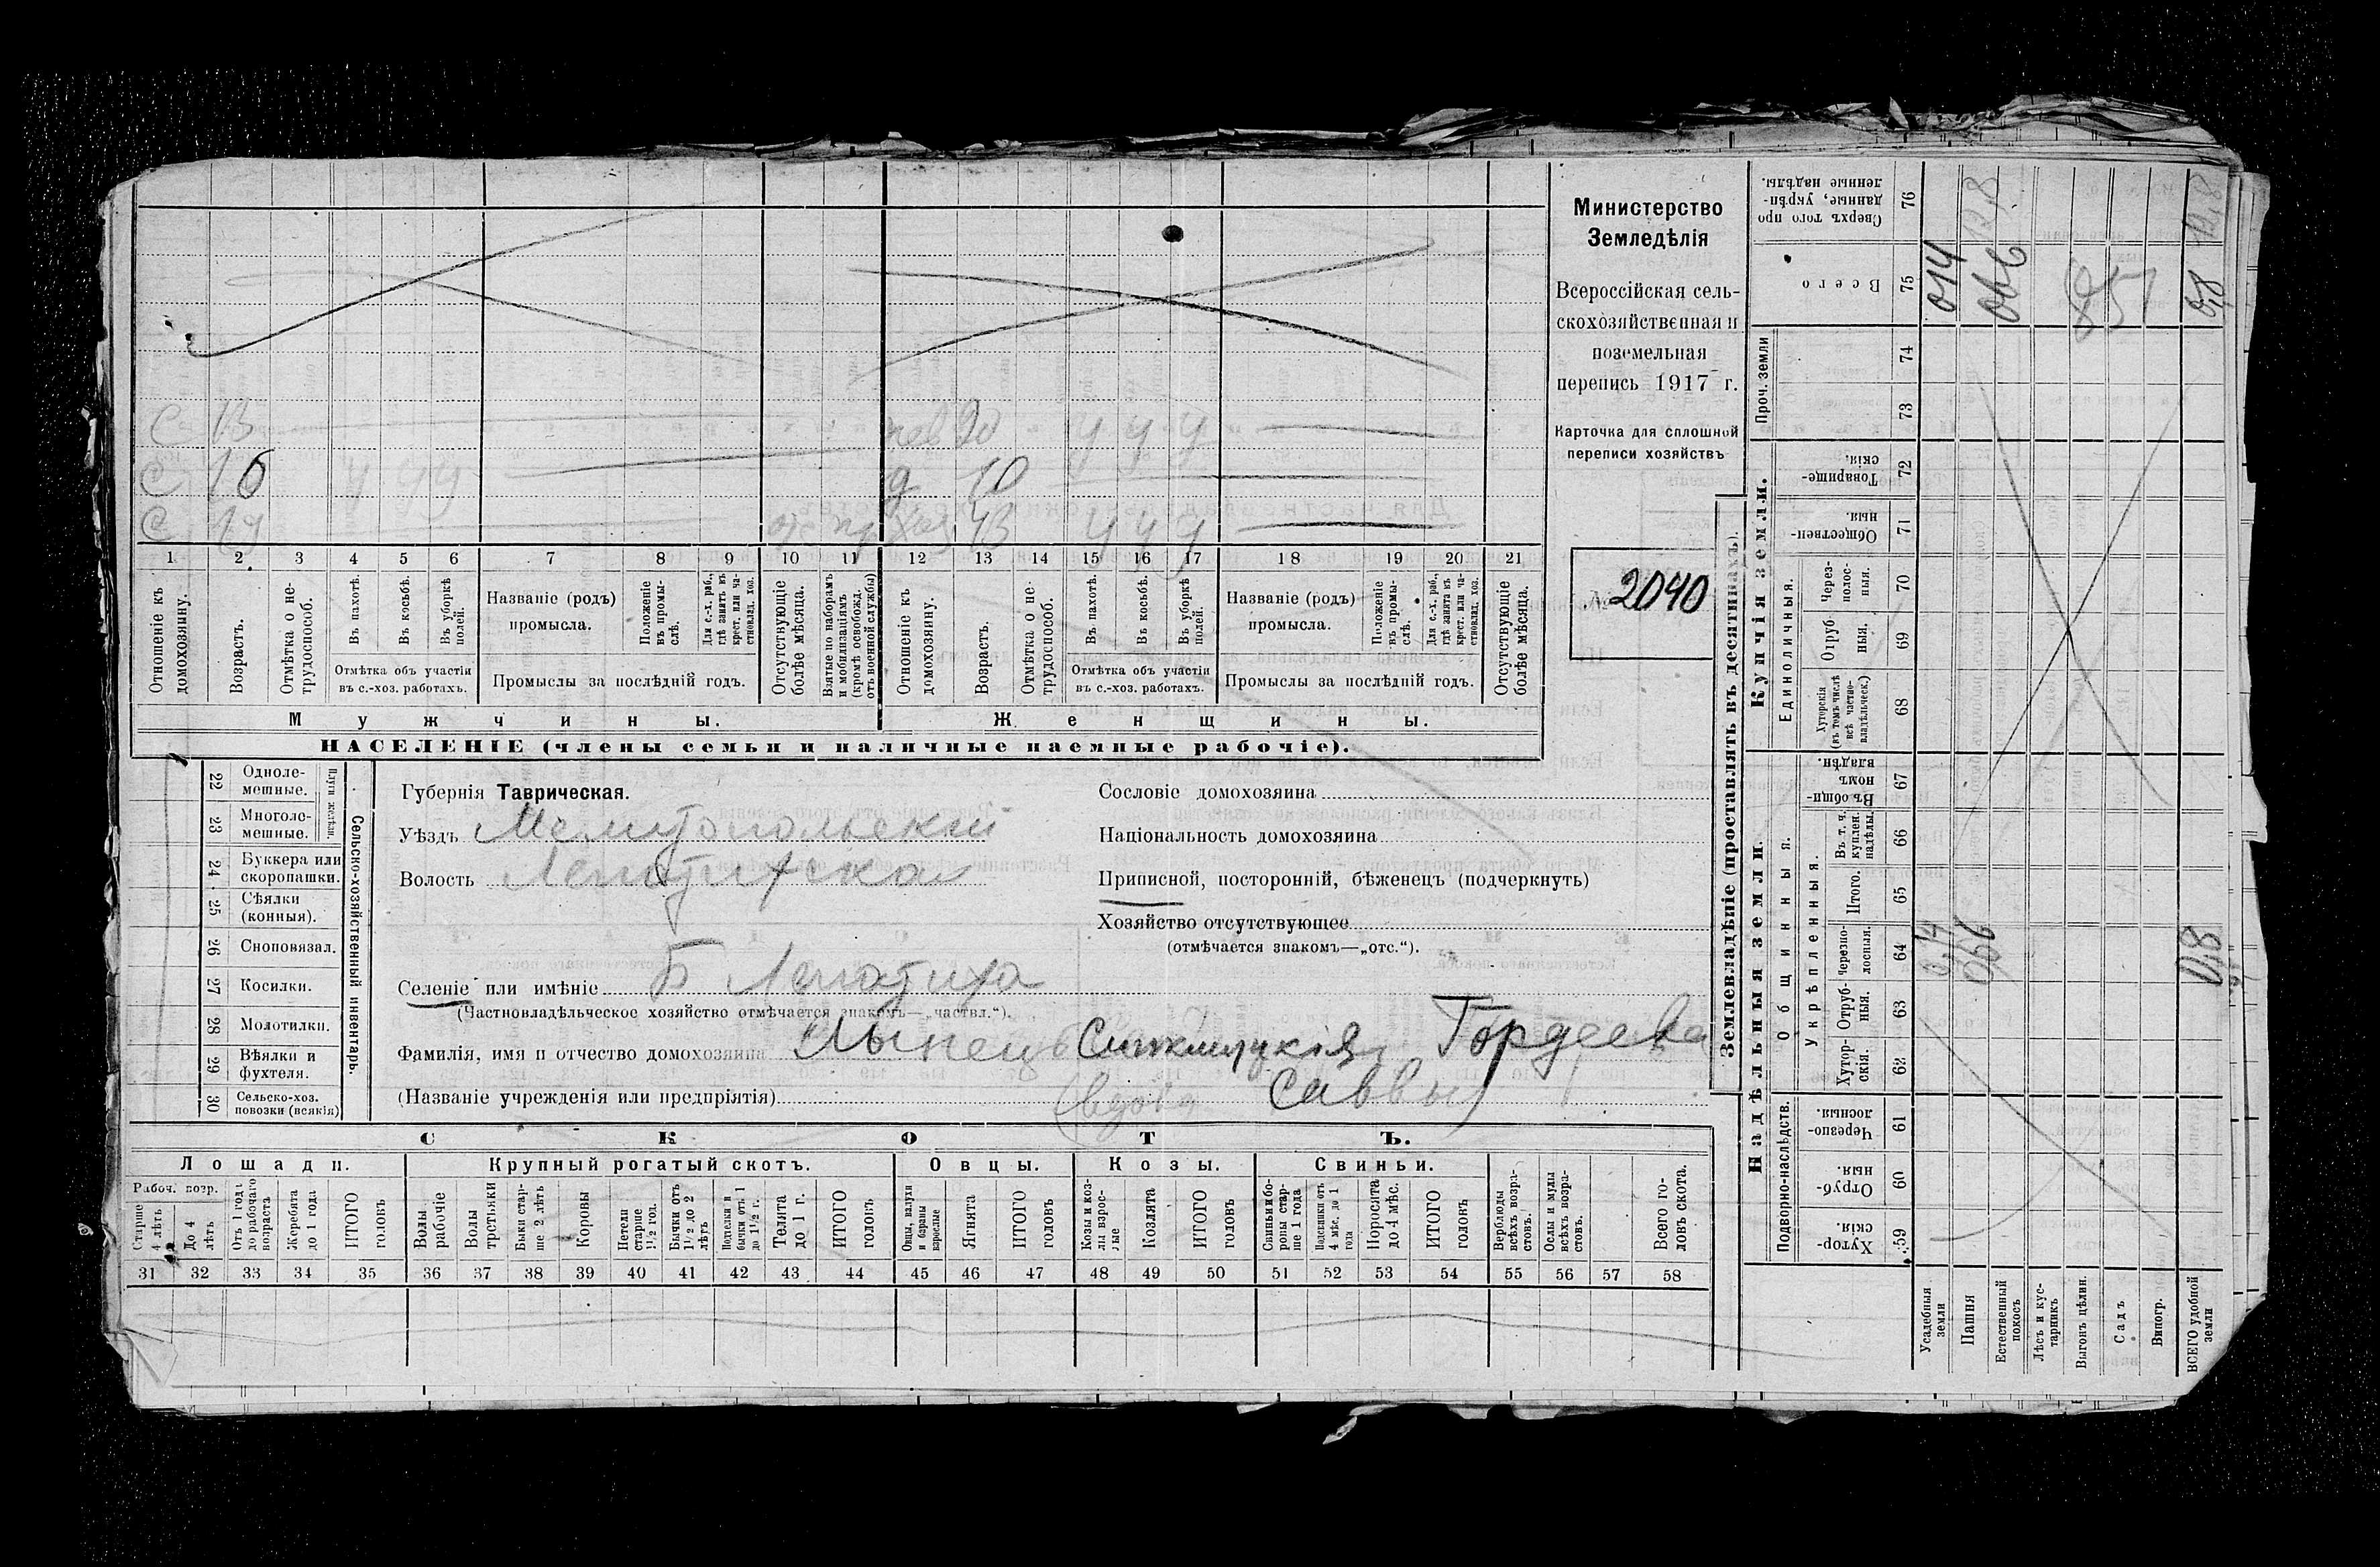 Министерство
Земледѣлія
Всероссійская сель-
скохозяйственная и
поземельная
перепись 1917 г.
Карточка для сплошной
переписи хозяйствъ
№ 2040
С 13
С 16
С 19
20 у у у
д 10
43 у у у
1 2 3 4 5 6 7 8 9 10 11 12 13 14 15 16 17 18 19 20 21
Отношеніе къ домохозяину.
Возрастъ.
Отмѣтка о не-трудоспособ.
Въ пахотѣ.
Въ косьбѣ.
Въ уборкѣ полей.
Отмѣтка объ участіи въ с.-хоз. работахъ.
Названіе (родъ) промысла.
Положеніе въ промы-слѣ.
Для с.-х. раб., гдѣ занятъ въ крест. или ча-стновлад. хоз.
Промыслы за послѣдній годъ.
Отсутствующіе болѣе мѣсяца.
Взятые по наборамъ и мобилизаціямъ (кромѣ освобожд. отъ военной службы)
Отношеніе къ домохозяину.
Возрастъ.
Отмѣтка о не-трудоспособ.
Въ пахотѣ.
Въ косьбѣ.
Въ уборкѣ полей.
Отмѣтка объ участіи въ с.-хоз. работахъ.
Названіе (родъ) промысла.
Положеніе въ промы-слѣ.
Для с.-х. раб., гдѣ занята въ крест. или ча-стновлад. хоз.
Промыслы за послѣдній годъ.
Отсутствующіе болѣе мѣсяца.
Мужчины. Женщины.
НАСЕЛЕНІЕ (члены семьи и наличные наемные рабочіе).
22 Одноле-мешные.
23 Многоле-мешные.
24 Буккера или скоропашки.
25 Сѣялки (конныя).
26 Сноповязал.
27 Косилки.
28 Молотилки.
29 Вѣялки и фухтеля.
30 Сельско-хоз. повозки (всякія)
Сельско-хозяйственный инвентарь.
Губернія Таврическая.
Уѣздъ Мелитопольскій
Волость Лепатихская
Селеніе или имѣніе Б Лепатиха
(Частновладѣльческое хозяйство отмѣчается знакомъ—„частвл.“).
Фамилія, имя и отчество домохозяина Гордеева
(Названіе учрежденія или предпріятія) (вдова Саввы)
Сословіе домохозяина
Національность домохозяина
Приписной, посторонній, бѣженецъ (подчеркнуть)
Хозяйство отсутствующее
(отмѣчается знакомъ—„отс.“).
СКОТЪ.
Лошади. Крупный рогатый скотъ. Овцы. Козы. Свиньи.
Рабоч. возр.
Старше 4 лѣтъ
До 4 лѣтъ
Отъ 1 года до рабочаго возраста
Жеребята до 1 года
ИТОГО головъ
Волы рабочіе
Волы третьяки
Быки стар-ше 2 лѣтъ
Коровы
Нетели старше 1½ год.
Бычки отъ 1½ до 2 лѣтъ
Подтелки и бычки отъ 1 до 1½ г.
Телята до 1 г.
ИТОГО головъ
Овцы, валухи и бараны взрослые
Ягнята
ИТОГО головъ
Козы и коз-лы взрос-лые
Козлята
ИТОГО головъ
Свиньи и бо-ровы стар-ше 1 года
Подсвинки отъ 4 мѣс. до 1 года
Поросята до 4 мѣс.
ИТОГО головъ
Верблюды всѣхъ возра-стовъ.
Ослы и мулы всѣхъ возра-стовъ.
Всего го-ловъ скота.
31 32 33 34 35 36 37 38 39 40 41 42 43 44 45 46 47 48 49 50 51 52 53 54 55 56 57 58
Землевладѣніе (проставлять въ десятинахъ).
Купчія земли.
Надѣльныя земли.
Сверхъ того про-данные, укрѣп-ленные надѣлы. 76
Всего 75 014 066 0,8
Проч. земли 74 73
Товарище-скія. 72
Обществен-ныя. 71
Единоличныя.
Через-полос-ныя. 70
Отруб-ныя. 69
Хуторскія (въ томъ числѣ всѣ частно-владѣльческ.) 68
Въ общин-номъ владѣн. 67
Общинныя.
Укрѣпленныя.
Въ т. ч. куплен. надѣлы. 66
Итого. 65
Черезпо-лосныя. 64 0,14 066 0,8
Отруб-ныя. 63
Хутор-скія. 62
Подворно-наслѣдств.
Черезпо-лосныя. 61
Отруб-ныя. 60
Хутор-скія. 59
Усадебныя земли
Пашня
Естественный покосъ
Лѣсъ и кус-тарникъ
Выгонъ цѣлин.
Садъ
Виногр.
ВСЕГО удобной земли